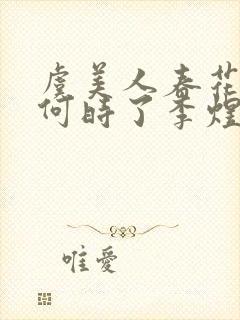 虞美人春花
何時了李煜
唯愛